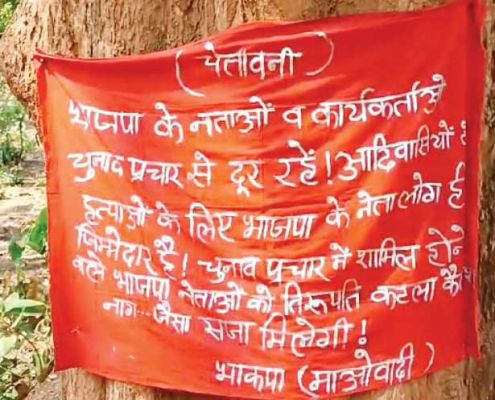 (चेतावनी)
भाजपा के नेताओं व कार्यकर्ताओ
चुनाव प्रचार से दूर रहें! आदिवासियों
हत्याओं के लिए भाजपा के नेता लोग ही
जिम्मेदार है! चुनाव प्रचार में शामिल होने
वाले भाजपा नेताओं को तिरूपति कटला
नाग जैसा सजा मिलेगी!
भाकपा (माओवादी)